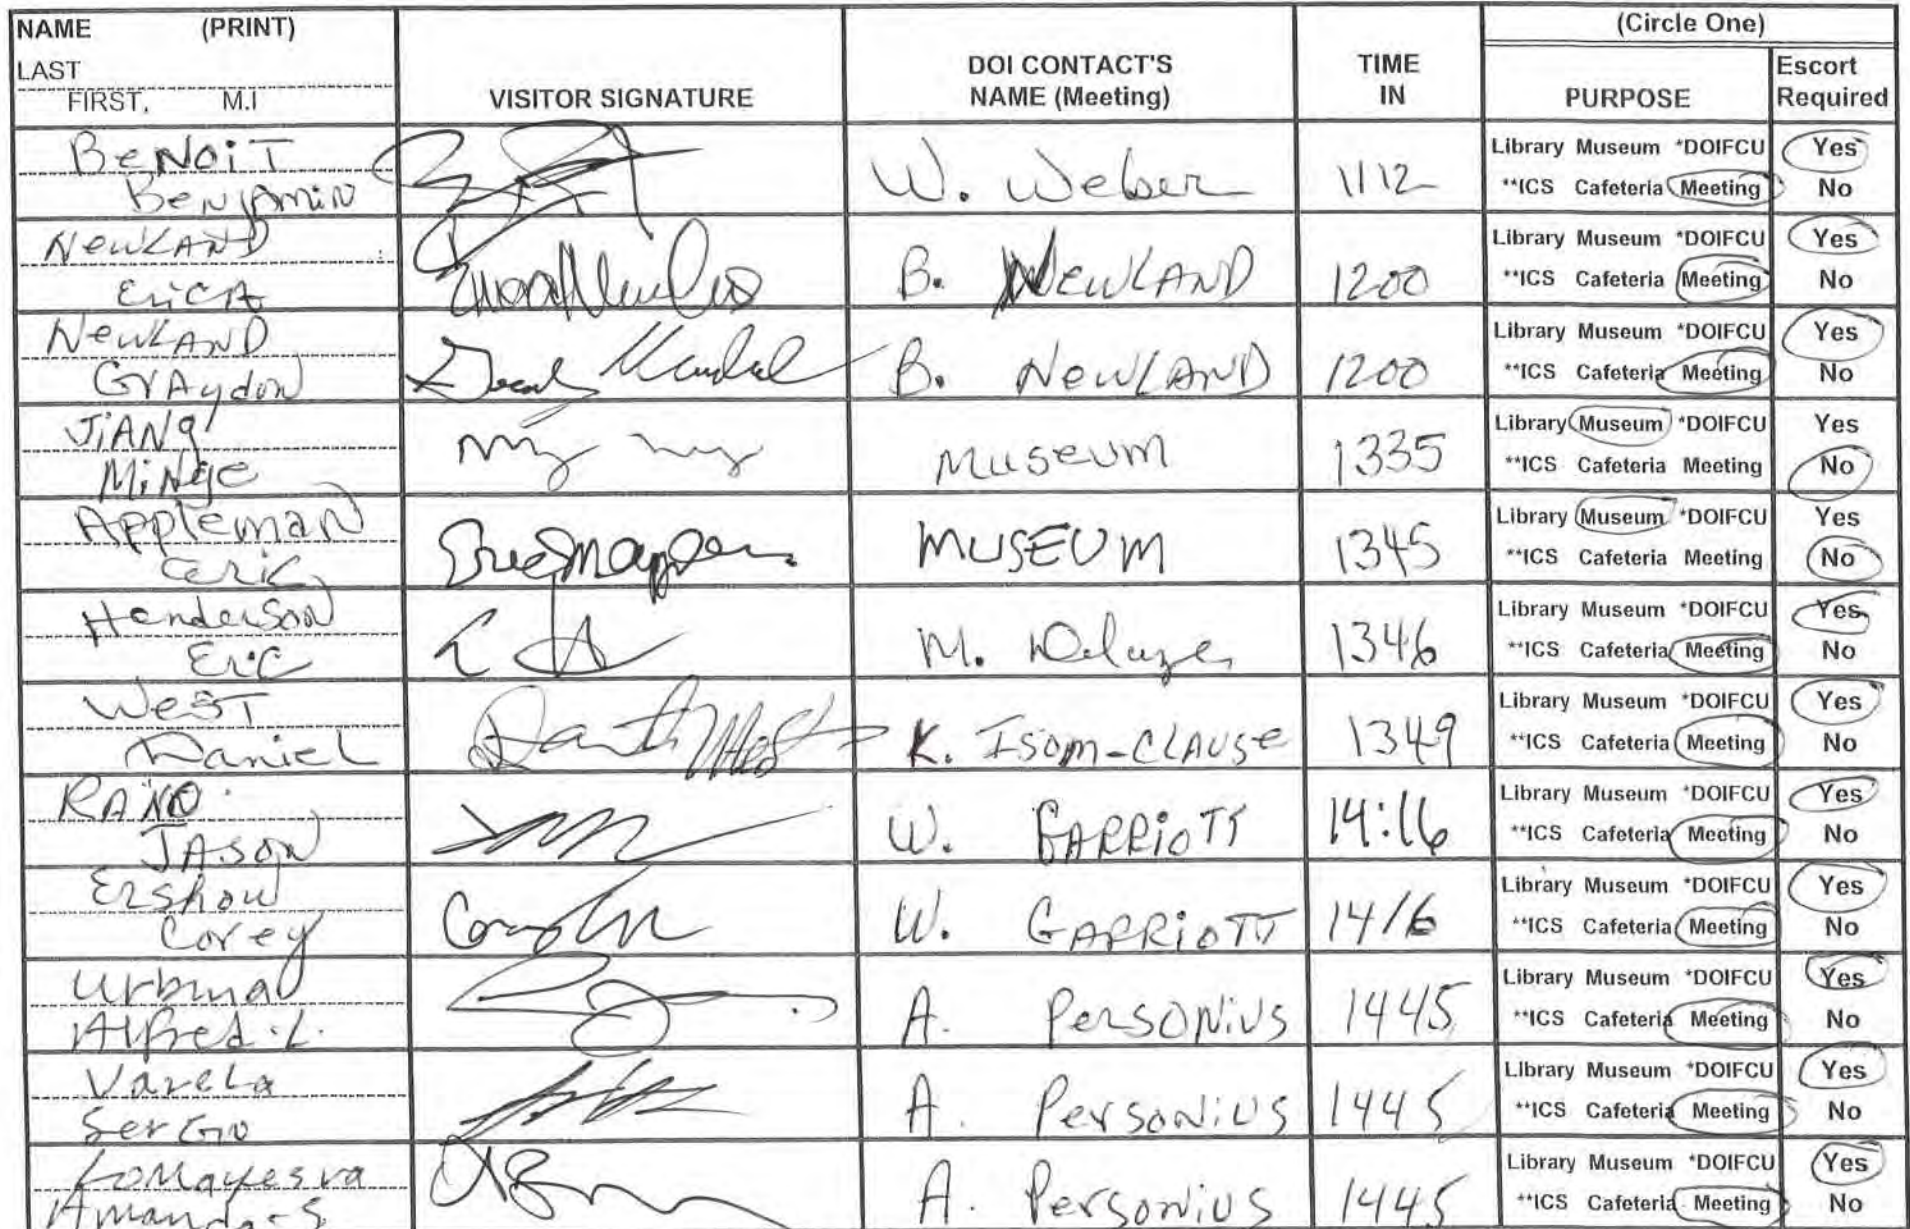 NAME (PRINT)
LAST
FIRST, M.I
VISITOR SIGNATURE
DOI CONTACT'S
NAME (Meeting)
TIME
IN
(Circle One)
PURPOSE
Escort
Required
BeNoiT
BeNjAmiN
W. Weber
1112
Library Museum *DOIFCU Yes
**ICS Cafeteria Meeting No
NewLAND
EricA
B. NewLAND
1200
Library Museum *DOIFCU Yes
**ICS Cafeteria Meeting No
NewLAND
GrAydon
B. NewLAND
1200
Library Museum *DOIFCU Yes
**ICS Cafeteria Meeting No
JiANg
museum
1335
Library Museum *DOIFCU Yes
**ICS Cafeteria Meeting No
Appleman
eric
MUSEUM
1345
Library Museum *DOIFCU Yes
**ICS Cafeteria Meeting No
Henderson
Eric
M.
1346
Library Museum *DOIFCU Yes
**ICS Cafeteria Meeting No
WeST
Daniel
K. Isom-CLAUSe
1349
Library Museum *DOIFCU Yes
**ICS Cafeteria Meeting No
JASON
W. GARRiOTT
14:16
Library Museum *DOIFCU Yes
**ICS Cafeteria Meeting No
Ershow
Corey
W. GARRiOTT
1416
Library Museum *DOIFCU Yes
**ICS Cafeteria Meeting No
Urbina
Alfred. L.
A. PersoNiUS
1445
Library Museum *DOIFCU Yes
**ICS Cafeteria Meeting No
VareLa
SerGio
A. PersoNiUS
1445
Library Museum *DOIFCU Yes
**ICS Cafeteria Meeting No
LoMayesva
Amanda-S
A. PersoNiUS
1445
Library Museum *DOIFCU Yes
**ICS Cafeteria Meeting No